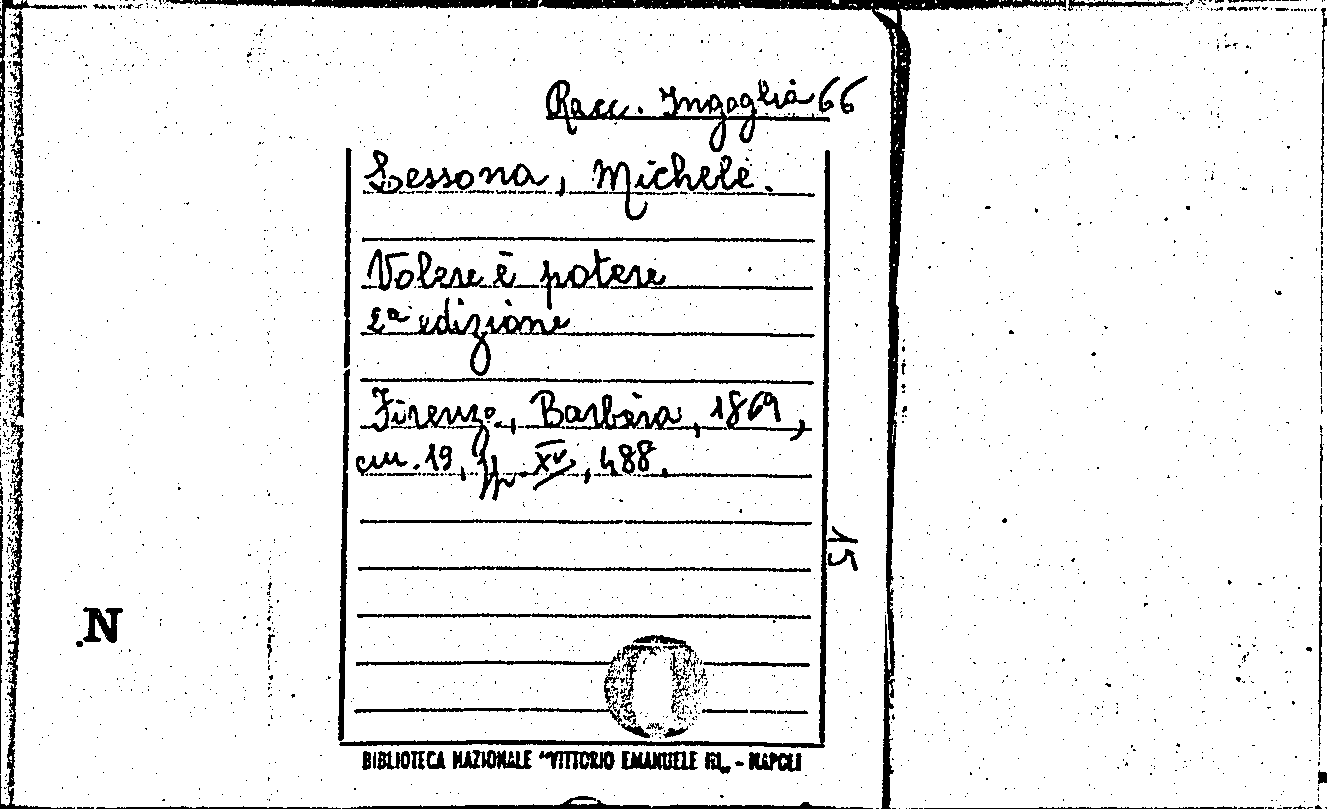 Racc. Ingaglia 66
Lessona, Michele.
Volere è potere
2ª edizione
Firenze, Barbèra, 1869,
cm. 19, pp. XV, 488.
15
N
BIBLIOTECA NAZIONALE "VITTORIO EMANUELE III„ - NAPOLI